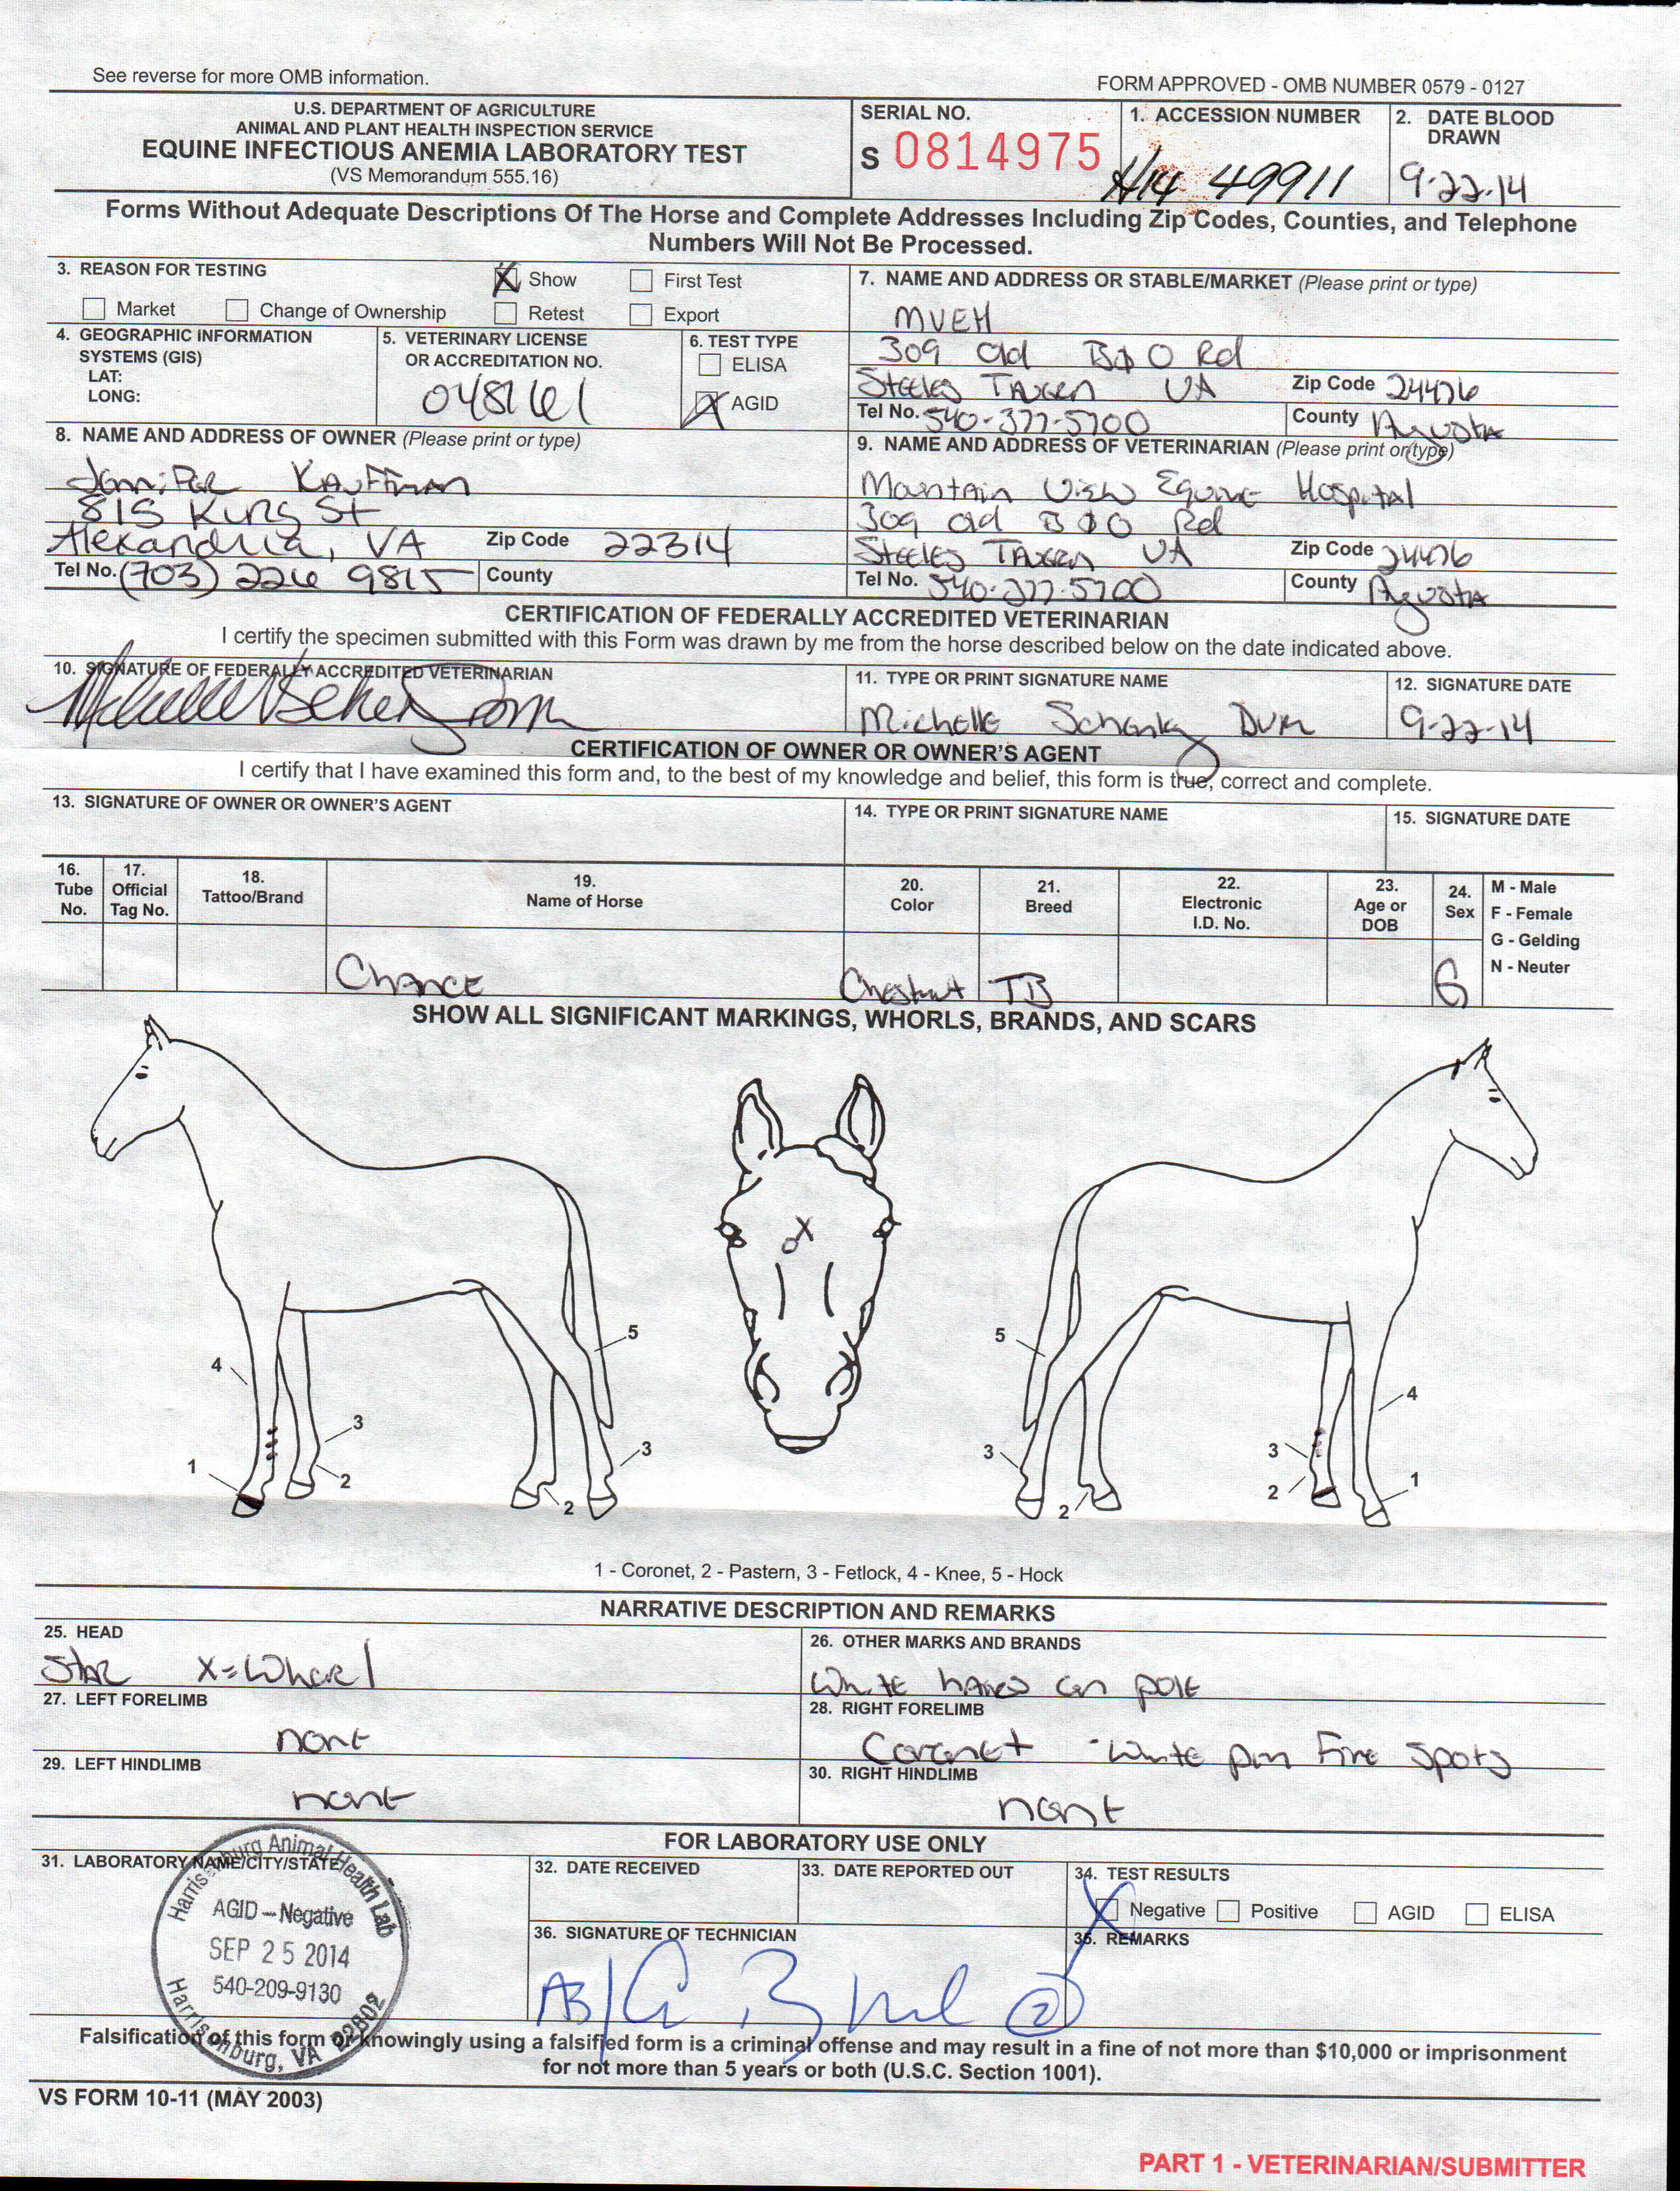 See reverse for more OMB information.
FORM APPROVED - OMB NUMBER 0579 - 0127
U.S. DEPARTMENT OF AGRICULTURE
ANIMAL AND PLANT HEALTH INSPECTION SERVICE
EQUINE INFECTIOUS ANEMIA LABORATORY TEST
(VS Memorandum 555.16)
SERIAL NO.
S 0814975
1. ACCESSION NUMBER
H14 49911
2. DATE BLOOD DRAWN
9-22-14
Forms Without Adequate Descriptions Of The Horse and Complete Addresses Including Zip Codes, Counties, and Telephone
Numbers Will Not Be Processed.
3. REASON FOR TESTING
X Show
First Test
Market
Change of Ownership
Retest
Export
4. GEOGRAPHIC INFORMATION
SYSTEMS (GIS)
LAT:
LONG:
5. VETERINARY LICENSE
OR ACCREDITATION NO.
048161
6. TEST TYPE
ELISA
X AGID
7. NAME AND ADDRESS OR STABLE/MARKET (Please print or type)
MVEH
309 Old B&O Rd
Steeles Tavern VA Zip Code 24476
Tel No. 540-377-5700 County Augusta
8. NAME AND ADDRESS OF OWNER (Please print or type)
Jennifer Kauffman
815 King St
Alexandria, VA Zip Code 22314
Tel No. (703) 226 9815 County
9. NAME AND ADDRESS OF VETERINARIAN (Please print or type)
Mountain View Equine Hospital
309 Old B&O Rd
Steeles Tavern VA Zip Code 24476
Tel No. 540-377-5700 County Augusta
CERTIFICATION OF FEDERALLY ACCREDITED VETERINARIAN
I certify the specimen submitted with this Form was drawn by me from the horse described below on the date indicated above.
10. SIGNATURE OF FEDERALLY ACCREDITED VETERINARIAN
11. TYPE OR PRINT SIGNATURE NAME
Michelle Schenky DVM
12. SIGNATURE DATE
9-22-14
CERTIFICATION OF OWNER OR OWNER'S AGENT
I certify that I have examined this form and, to the best of my knowledge and belief, this form is true, correct and complete.
13. SIGNATURE OF OWNER OR OWNER'S AGENT
14. TYPE OR PRINT SIGNATURE NAME
15. SIGNATURE DATE
16. Tube No.
17. Official Tag No.
18. Tattoo/Brand
19. Name of Horse
20. Color
21. Breed
22. Electronic I.D. No.
23. Age or DOB
24. Sex
M - Male
F - Female
G - Gelding
N - Neuter
Chance Chestnut TB G
SHOW ALL SIGNIFICANT MARKINGS, WHORLS, BRANDS, AND SCARS
X
5
4
3
1
2
3
2
5
4
3
3
2
1
2
1 - Coronet, 2 - Pastern, 3 - Fetlock, 4 - Knee, 5 - Hock
NARRATIVE DESCRIPTION AND REMARKS
25. HEAD
Star X=Whorl
26. OTHER MARKS AND BRANDS
White hairs on pole
27. LEFT FORELIMB
none
28. RIGHT FORELIMB
Coronet - White pin Fire spots
29. LEFT HINDLIMB
none
30. RIGHT HINDLIMB
none
FOR LABORATORY USE ONLY
31. LABORATORY NAME/CITY/STATE
Harrisonburg Animal Health Lab
AGID - Negative
SEP 25 2014
540-209-9130
Harrisonburg, VA 22802
32. DATE RECEIVED
33. DATE REPORTED OUT
34. TEST RESULTS
X Negative
Positive
AGID
ELISA
35. REMARKS
36. SIGNATURE OF TECHNICIAN
Falsification of this form or knowingly using a falsified form is a criminal offense and may result in a fine of not more than $10,000 or imprisonment
for not more than 5 years or both (U.S.C. Section 1001).
VS FORM 10-11 (MAY 2003)
PART 1 - VETERINARIAN/SUBMITTER